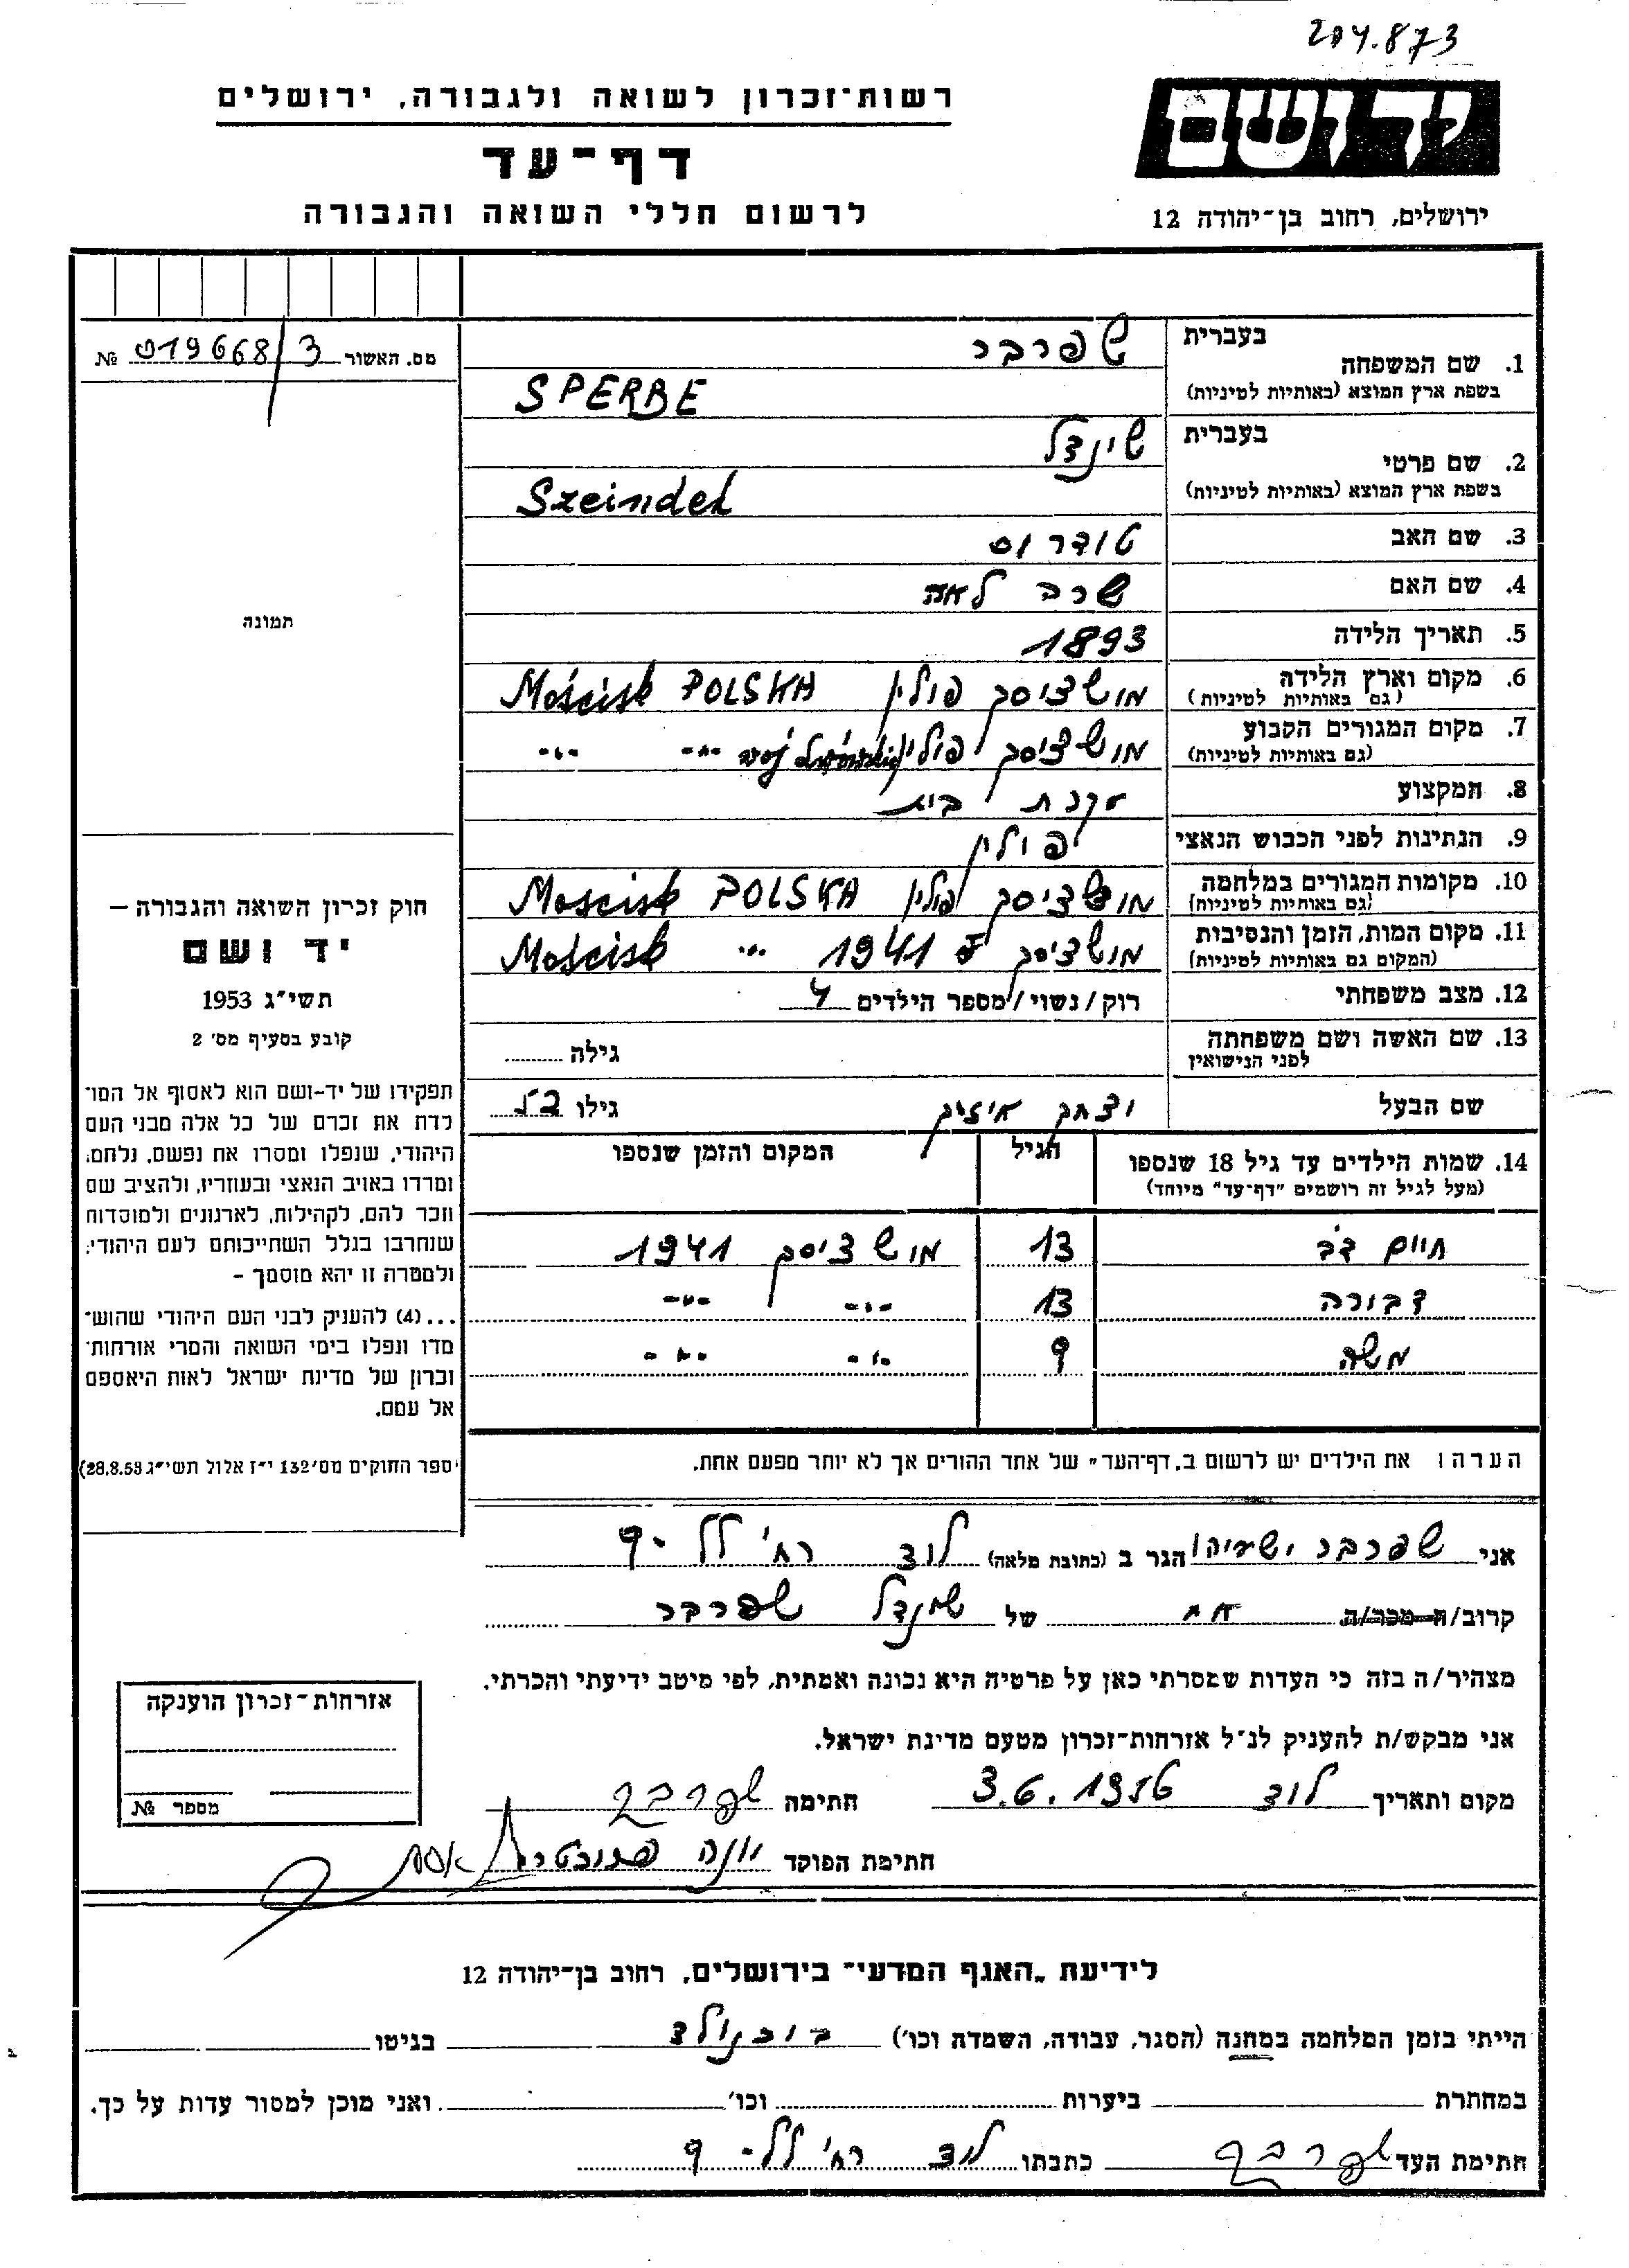 204.873
ידושם
רשות־זכרון לשואה ולגבורה, ירושלים
דף־עד
לרשום חללי השואה והגבורה
ירושלים, רחוב בן־יהודה 12
מס. האשור 019668/3 №
תמונה
חוק זכרון השואה והגבורה —
יד ושם
תשי״ג 1953
קובע בסעיף מס׳ 2
תפקידו של יד-ושם הוא לאסוף אל המו־
לדת את זכרם של כל אלה מבני העם
היהודי, שנפלו ומסרו את נפשם, נלחמו
ומרדו באויב הנאצי ובעוזריו, ולהציב שם
וזכר להם, לקהילות, לארגונים ולמוסדות
שנחרבו בגלל השתייכותם לעם היהודי;
ולמטרה זו יהא מוסמך -
...(4) להעניק לבני העם היהודי שהוש־
מדו ונפלו בימי השואה והמרי אזרחות־
זכרון של מדינת ישראל לאות היאספם
אל עמם.
(ספר החוקים מס׳ 132 י״ז אלול תשי״ג 28.8.53)
בעברית שפרבר
1. שם המשפחה
בשפת ארץ המוצא (באותיות לטיניות) SPERBE
בעברית שינדל
2. שם פרטי
בשפת ארץ המוצא (באותיות לטיניות) Szeindel
3. שם האב טודרוס
4. שם האם לאה
5. תאריך הלידה 1893
6. מקום וארץ הלידה מושציסק פולין Mościsk POLSKA
(גם באותיות לטיניות)
7. מקום המגורים הקבוע מושציסק פולין
(גם באותיות לטיניות)
8. המקצוע עקרת בית
9. הנתינות לפני הכבוש הנאצי פולין
10. מקומות המגורים במלחמה מושציסק פולין Mościsk POLSKA
(גם באותיות לטיניות)
11. מקום המות, הזמן והנסיבות מושציסק 1941 Mościsk
(המקום גם באותיות לטיניות)
12. מצב משפחתי רוק/נשוי/מספר הילדים 4
13. שם האשה ושם משפחתה גילה
לפני הנישואין
שם הבעל יצחק אייזיק גילו 52
14. שמות הילדים עד גיל 18 שנספו הגיל המקום והזמן שנספו
(מעל לגיל זה רושמים "דף־עד" מיוחד)
חיים דב 13 מושציסק 1941
דבורה 13 -"- -"-
משה 9 -"- -"-
הערה: את הילדים יש לרשום ב„דף־העד" של אחד ההורים אך לא יותר מפעם אחת.
אני שפרבר ישעיהו הגר ב (כתובת מלאה) לוד רח׳ לל - 9
קרוב/ה מכר/ה של שינדל שפרבר
מצהיר/ה בזה כי העדות שמסרתי כאן על פרטיה היא נכונה ואמתית, לפי מיטב ידיעתי והכרתי.
אני מבקש/ת להעניק לנ״ל אזרחות־זכרון מטעם מדינת ישראל.
מקום ותאריך לוד 3.6.1956 חתימה שפרבר
חתימת הפוקד יונה
אזרחות־זכרון הוענקה
מספר №
לידיעת „האגף המדעי" בירושלים, רחוב בן־יהודה 12
הייתי בזמן המלחמה במחנה (הסגר, עבודה, השמדה וכו׳) בוכנולד בגיטו
במחתרת ביערות וכו׳ ואני מוכן למסור עדות על כך.
חתימת העד שפרבר כתבתו לוד רח׳ לל - 9